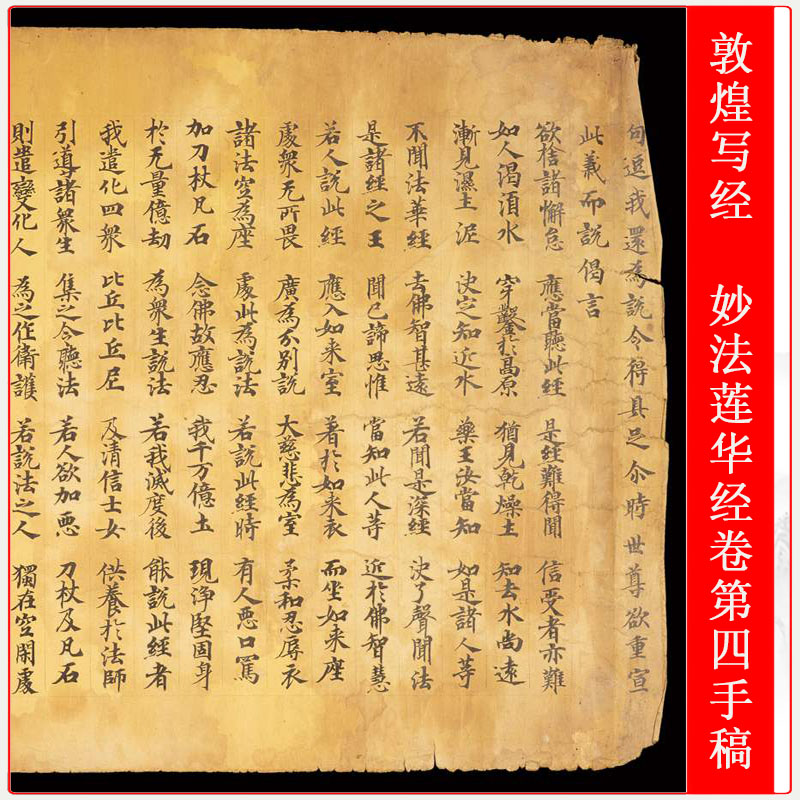 敦煌写经 妙法莲华经卷第四手稿
句逗我還為說令得具足尒時世尊欲重宣
此義而說偈言
欲捨諸懈怠 應當聽此經 是經難得聞 信受者亦難
如人渴湏水 穿鑿於高原 猶見乾燥土 知去水尚遠
漸見濕土泥 决定知近水 藥王汝當知 如是諸人等
不聞法華經 去佛智甚遠 若聞是深經 决了聲聞法
是諸經之王 聞已諦思惟 當知此人等 近於佛智慧
若人說此經 應入如来室 著於如来衣 而坐如来座
處衆无所畏 廣為分別說 大慈悲為室 柔和忍辱衣
諸法空為座 處此為說法 若說此經時 有人惡口罵
加刀杖瓦石 念佛故應忍 我千万億土 現淨堅固身
於无量億劫 為衆生說法 若我滅度後 能說此經者
我遣化四衆 比丘比丘尼 及清信士女 供養於法師
引導諸衆生 集之令聽法 若人欲加惡 刀杖及瓦石
則遣變化人 為之作衛護 若說法之人 獨在空閑處